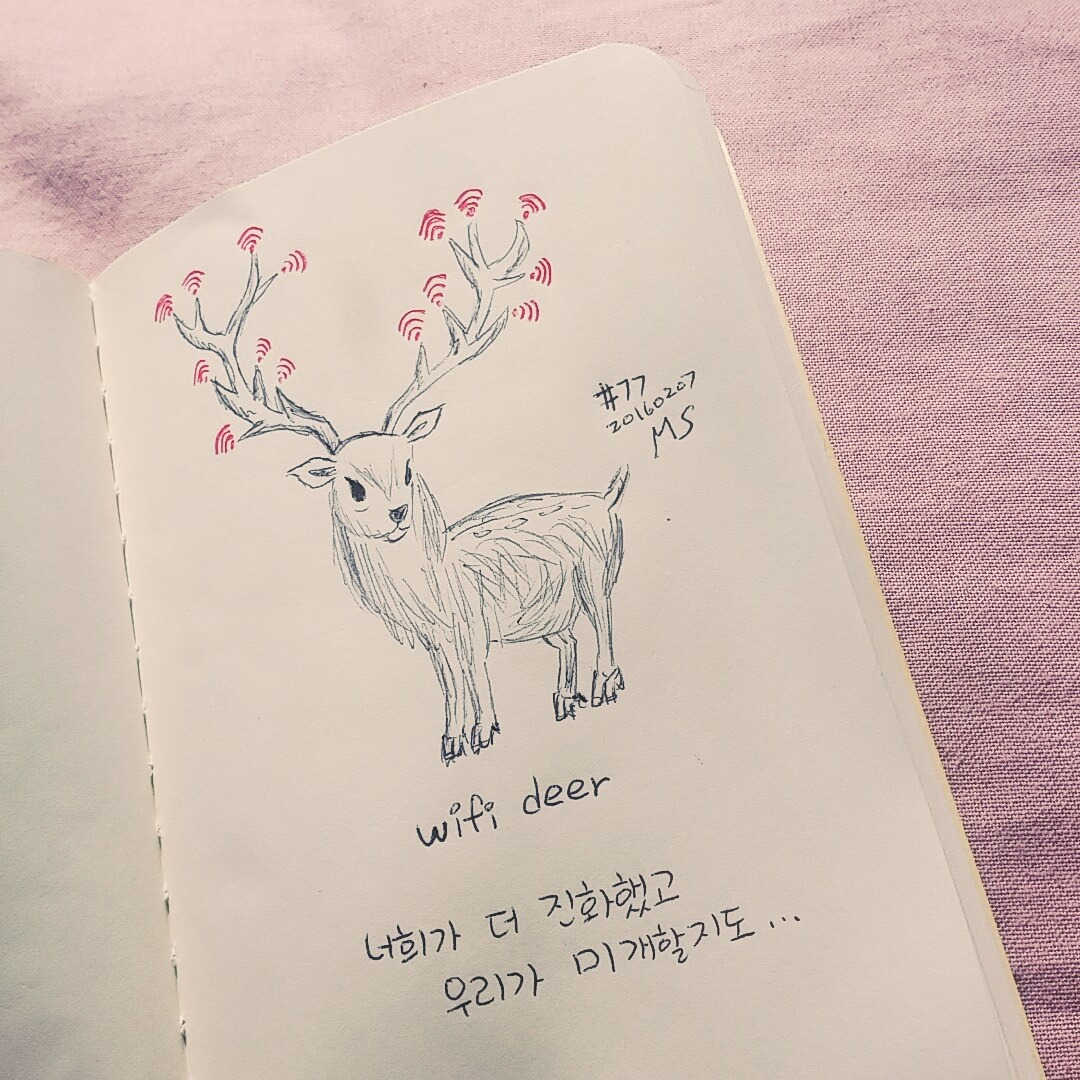 #77
20160207
MS
wifi deer
너희가 더 진화했고
우리가 미개할지도...